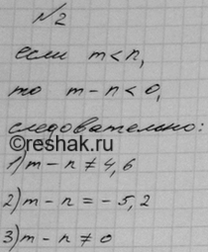 №2
если m < n,
то m - n < 0,
следовательно:
Reshak.ru
1) m - n ≠ 4,6
2) m - n = - 5,2
3) m - n ≠ 0